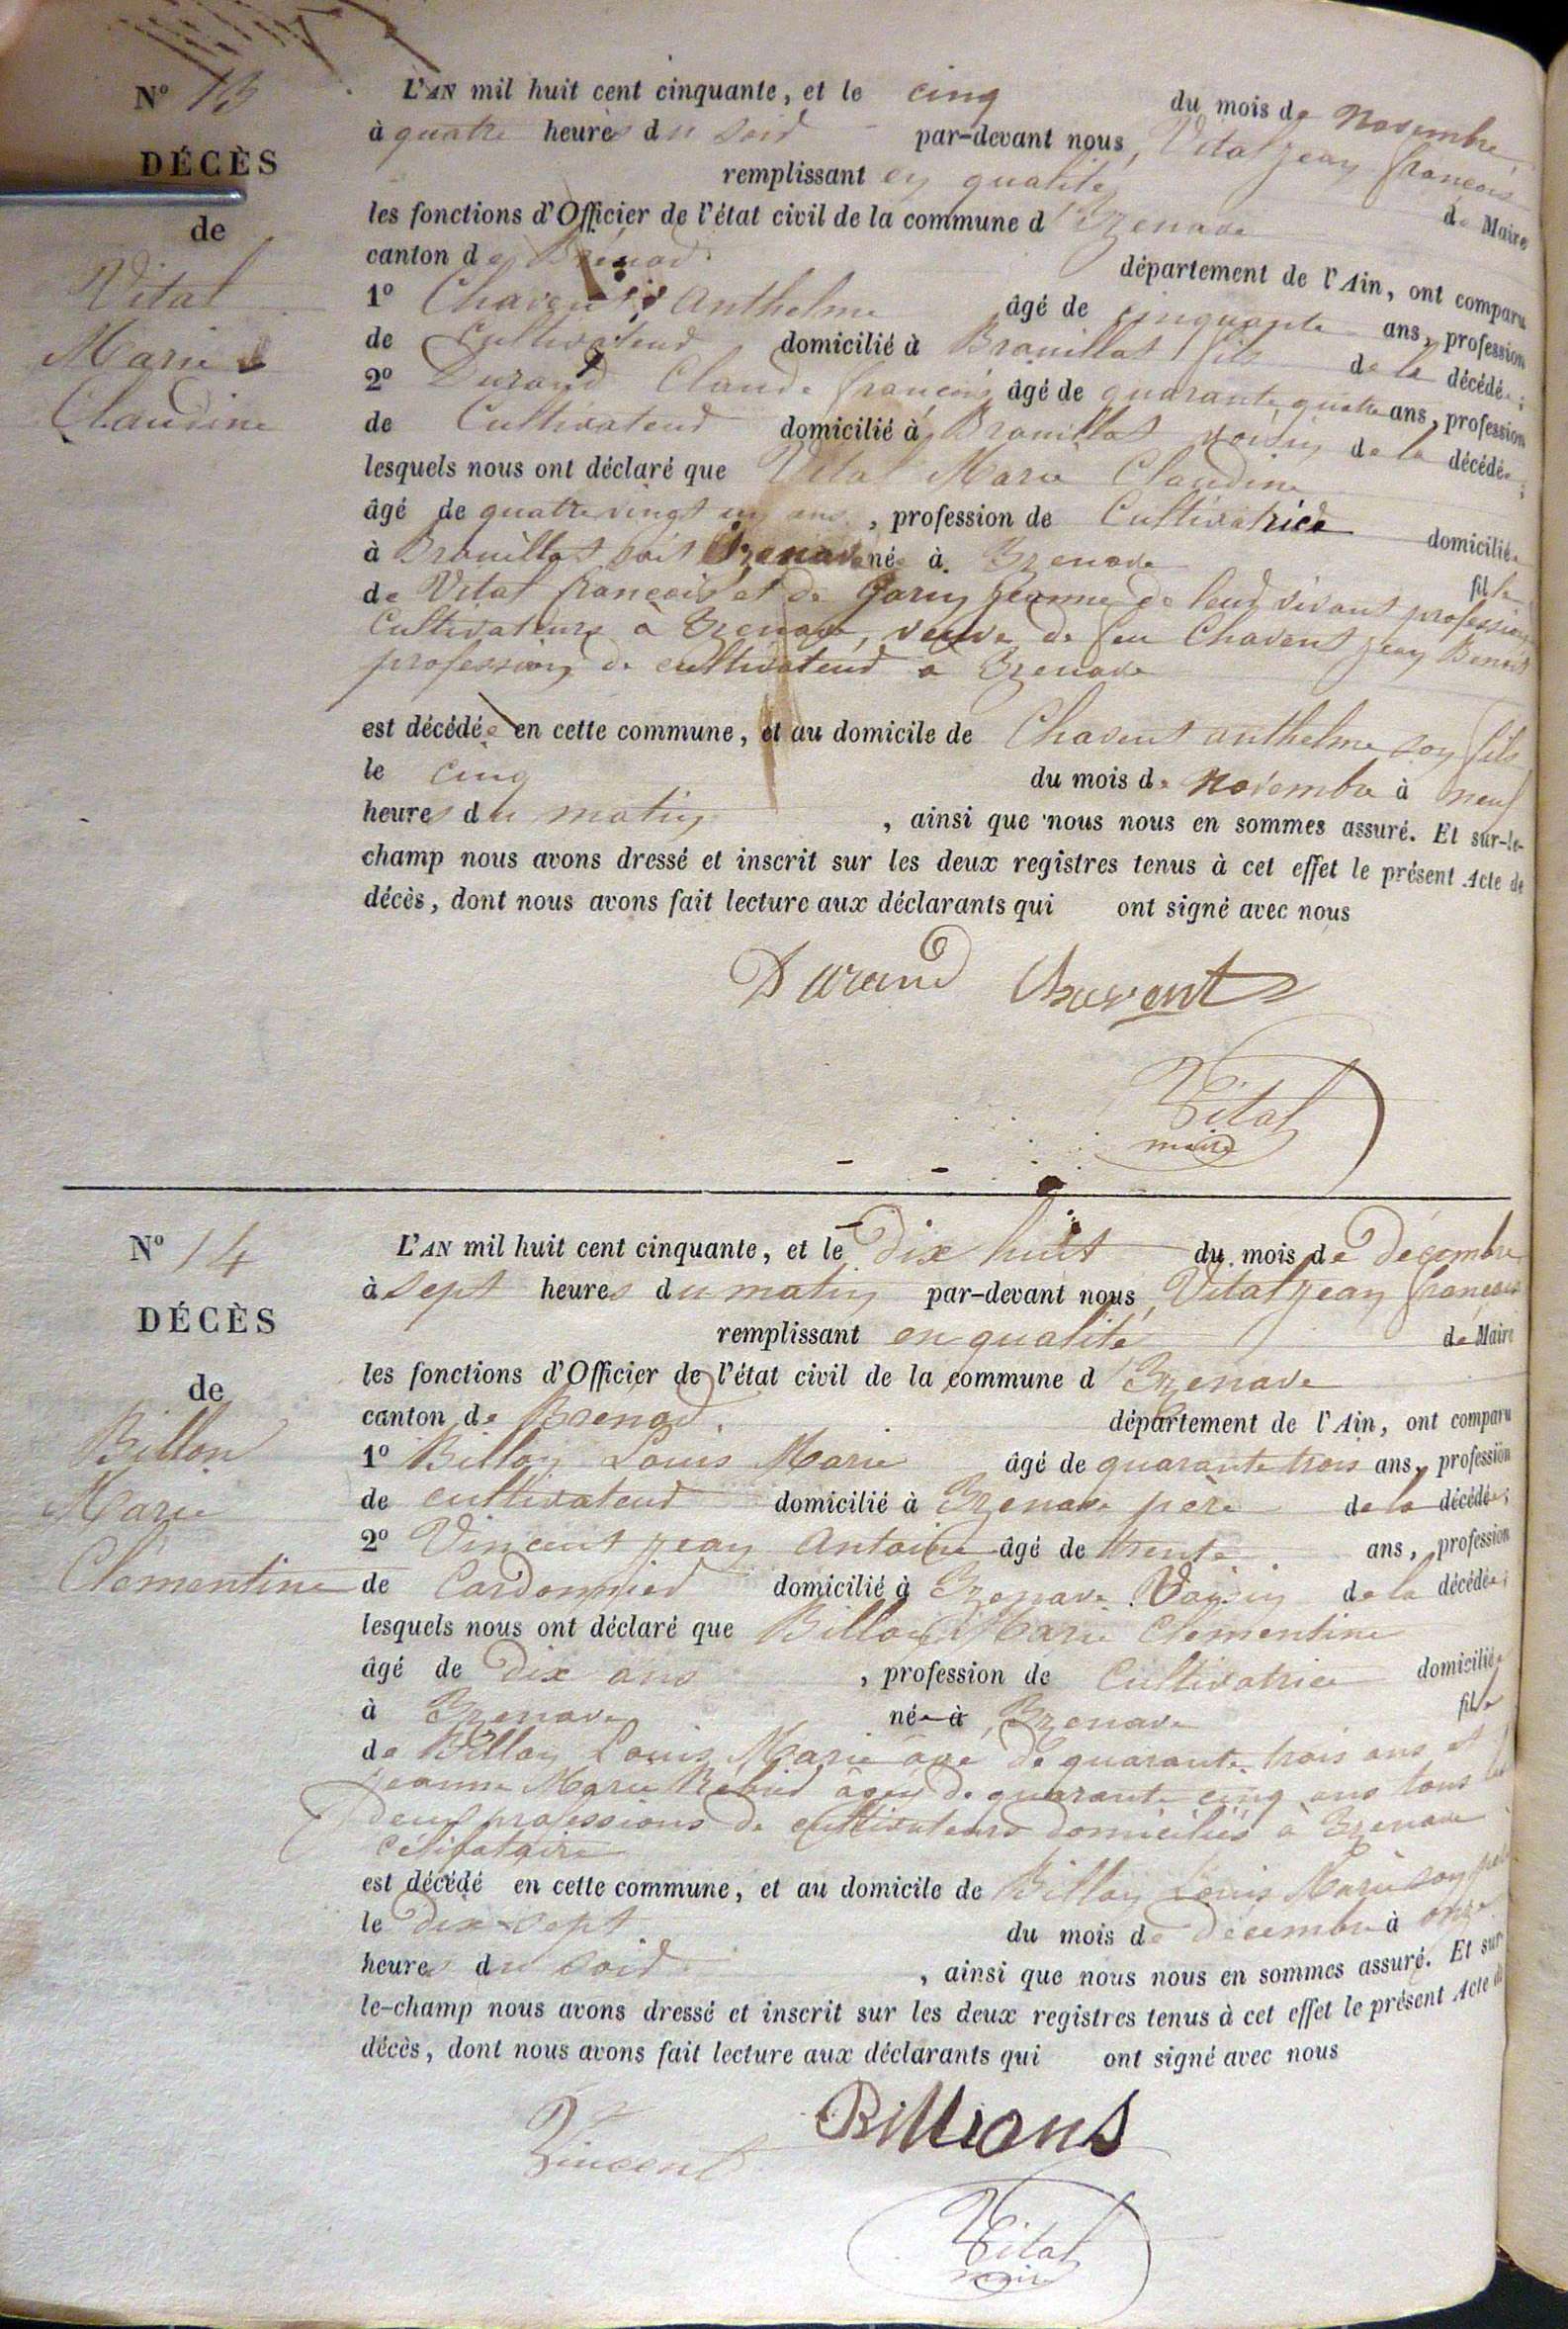 N° 13
DÉCÈS
de
Vital
Marie
Claudine
L'AN mil huit cent cinquante, et le cinq du mois de Novembre
à quatre heures du soir par-devant nous, Vital Jean françois
remplissant en qualité de Maire
les fonctions d'Officier de l'état civil de la commune d'Izenave
canton de Brénod département de l'Ain, ont comparu
1° Chavent Anthelme âgé de cinquante ans, profession
de cultivateur domicilié à Brouillat fils de la décédée;
2° Durand Claude françois âgé de quarante quatre ans, profession
de Cultivateur domicilié à Brouillat voisin de la décédée;
lesquels nous ont déclaré que Vital Marie Claudine
âgé de quatre vingt un ans, profession de Cultivatrice domiciliée
à Brouillat soit Izenave née à Izenave fille
de Vital françois et de Jeanne de leur vivant profession
Cultivateurs à Izenave, veuve de feu Chavent Jean Benoit
profession de cultivateur à Izenave
est décédée en cette commune, et au domicile de Chavent anthelme son fils
le cinq du mois de Novembre à neuf
heures du matin, ainsi que nous nous en sommes assuré. Et sur-le-
champ nous avons dressé et inscrit sur les deux registres tenus à cet effet le présent Acte de
décès, dont nous avons fait lecture aux déclarants qui ont signé avec nous
Durand Chavent
Vital
maire
N° 14
DÉCÈS
de
Billon
Marie
Clémentine
L'AN mil huit cent cinquante, et le Dix huit du mois de Décembre
à sept heures du matin par-devant nous, Vital Jean françois
remplissant en qualité de Maire
les fonctions d'Officier de l'état civil de la commune d'Izenave
canton de Brenod, département de l'Ain, ont comparu
1° Billon Louis Marie âgé de quarante trois ans, profession
de cultivateur domicilié à Izenave père de la décédée;
2° Vincent Jean Antoine âgé de trente ans, profession
de Cordonnier domicilié à Izenave Voisin de la décédée;
lesquels nous ont déclaré que Billon Marie Clementine
âgé de Dix ans, profession de Cultivatrice domiciliée
à Izenave née à Izenave fille
de Billon Louis Marie âgé de quarante trois ans et
Jeanne Marie âgée de quarante cinq ans tous les
deux professions de cultivateurs domiciliés à Izenave
celibataire
est décédé en cette commune, et au domicile de Billon Louis Marie son père
le dix-sept du mois de Décembre à onze
heures du soir, ainsi que nous nous en sommes assuré. Et sur-
le-champ nous avons dressé et inscrit sur les deux registres tenus à cet effet le présent Acte de
décès, dont nous avons fait lecture aux déclarants qui ont signé avec nous
Vincent Billions
Vital
maire